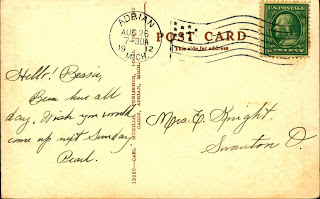 ADRIAN
AUG 26
7-30A
19 12
MICH.
POST CARD
This side for address
U.S. POSTAGE
Hello! Bessie,
Been here all
day. Wish you would
come up next Sunday.
Pearl.
Mrs. C. Knight.
Swanton O.